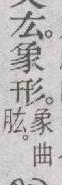 厷。象形。
象曲
肱。